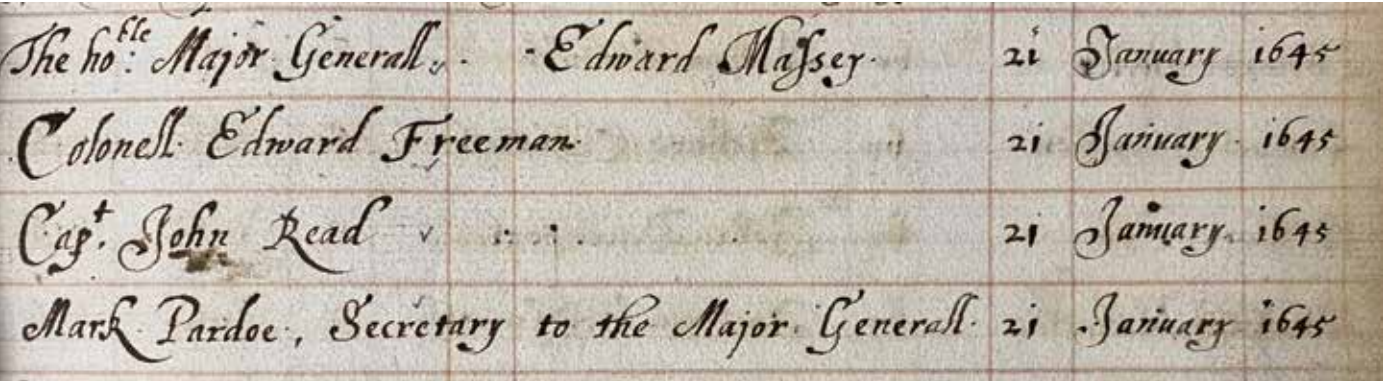 The ho:ble Major Generall. Edward Massey. 21 January 1645
Colonell Edward Freeman. 21 January 1645
Capt. John Read 21 January 1645
Mark Pardoe, Secretary to the Major Generall. 21 January 1645